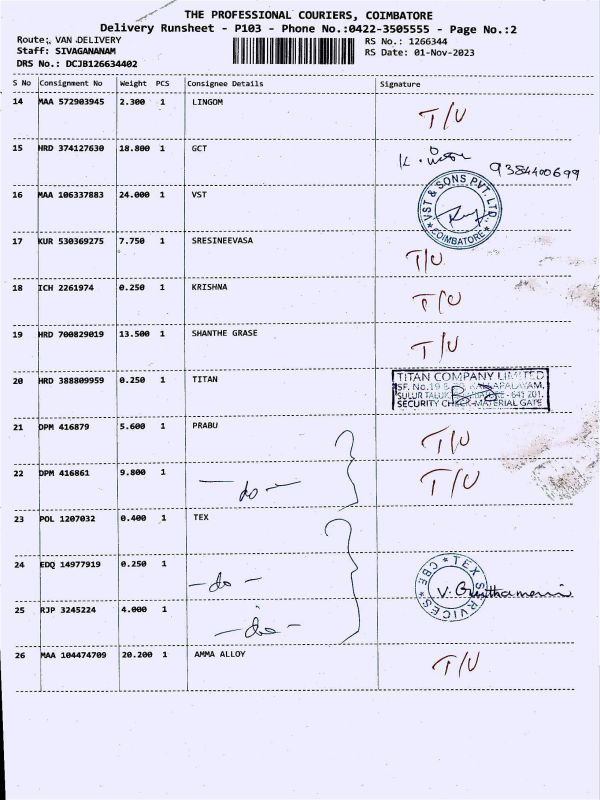 THE PROFESSIONAL COURIERS, COIMBATORE
Delivery Runsheet - P103 - Phone No.:0422-3505555 - Page No.:2
Route: VAN DELIVERY RS No.: 1266344
Staff: SIVAGANANAM RS Date: 01-Nov-2023
DRS No.: DCJB126634402
S No Consignment No Weight PCS Consignee Details Signature
14 MAA 572903945 2.300 1 LINGOM T/U
15 HRD 374127630 18.800 1 GCT K. 9384400699
16 MAA 106337883 24.000 1 VST VST & SONS PVT. LTD. * COIMBATORE *
17 KUR 530369275 7.750 1 SRESINEEVASA T/U
18 ICH 2261974 0.250 1 KRISHNA T/U
19 HRD 700829019 13.500 1 SHANTHE GRASE T/U
20 HRD 388809959 0.250 1 TITAN
TITAN COMPANY LIMITED
SF. No.19
SULUR TALUK - 641 201.
SECURITY CHECK-MATERIAL GATE
21 DPM 416879 5.600 1 PRABU T/U
22 DPM 416861 9.800 1 — do — T/U
23 POL 1207032 0.400 1 TEX
24 EDQ 14977919 0.250 1 — do — * TEX SERVICES * CBE V.
25 RJP 3245224 4.000 1 — do —
26 MAA 104474709 20.200 1 AMMA ALLOY T/U